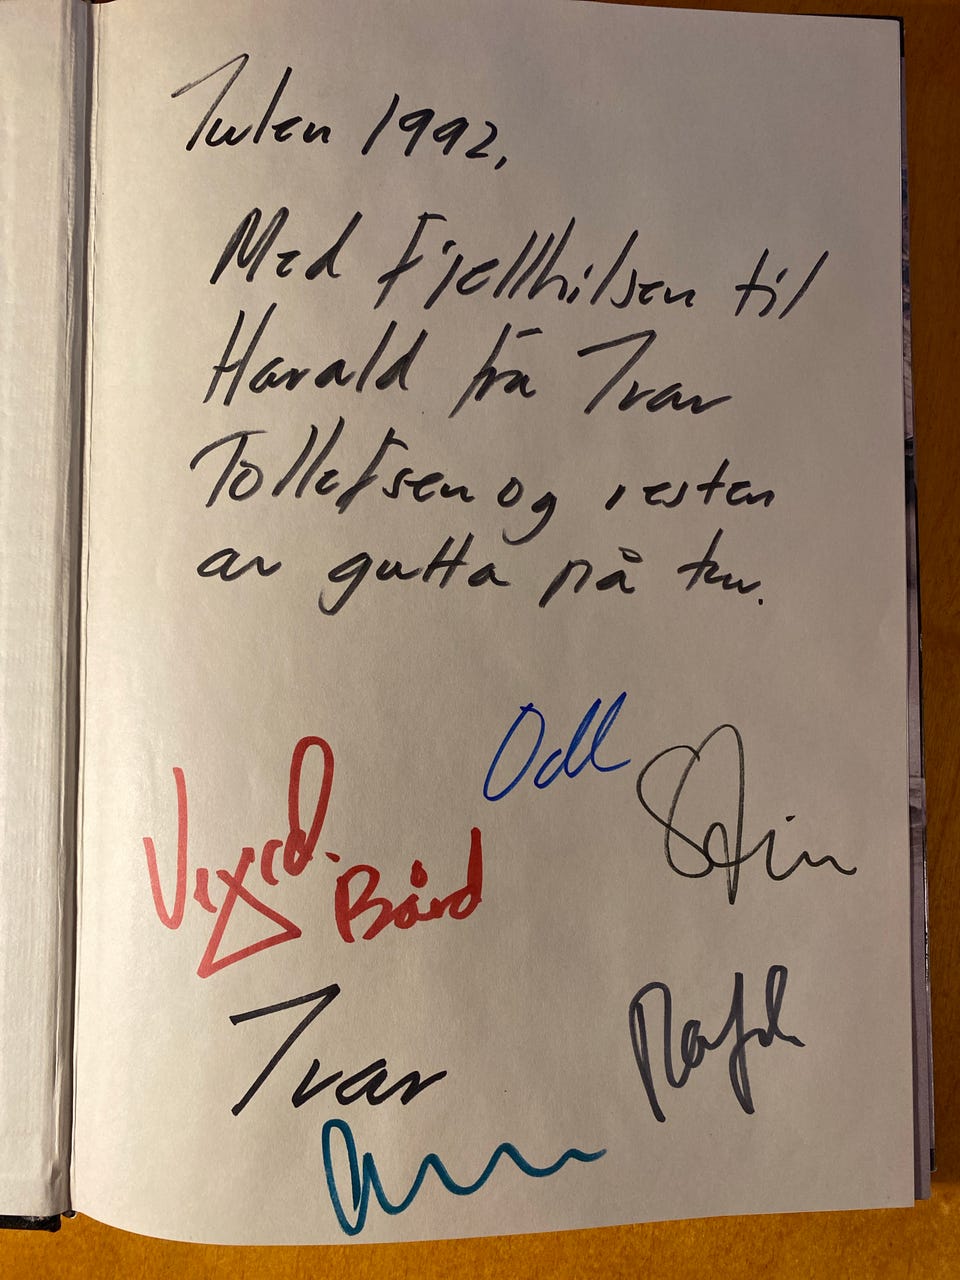 Julen 1992,
Med fjellhilsen til
Harald fra Ivar
Tollefsen og resten
av gutta på tur.
Odd
Stein
Vegard.
Bård
Ivar